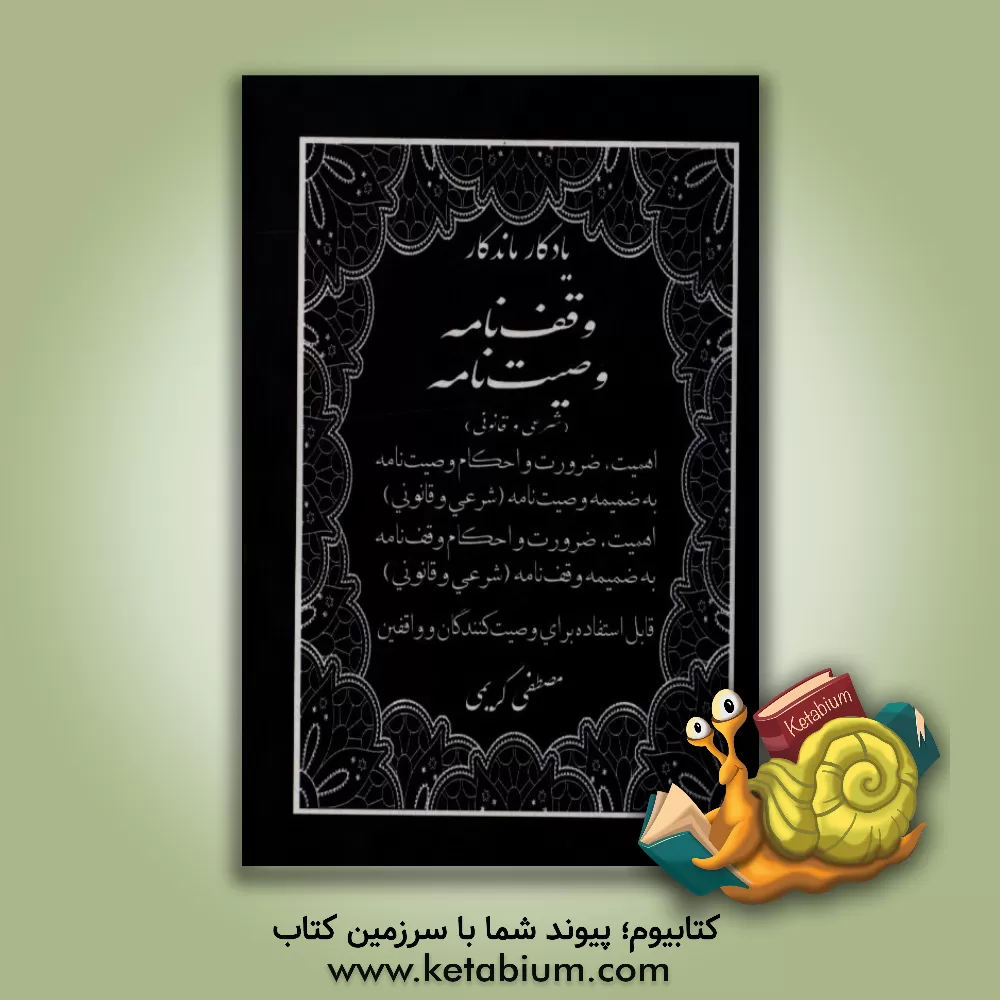 یادگار ماندگار
وقف‌نامه
وصیت‌نامه
(شرعی و قانونی)
اهمیت، ضرورت و احکام وصیت‌نامه
به ضمیمه وصیت‌نامه (شرعي و قانوني)
اهمیت، ضرورت و احکام وقف‌نامه
به ضمیمه وقف‌نامه (شرعي و قانوني)
قابل استفاده براي وصیت‌کنندگان و واقفین
مصطفی کریمی
Ketabium
کتابیوم؛ پیوند شما با سرزمین کتاب
www.ketabium.com